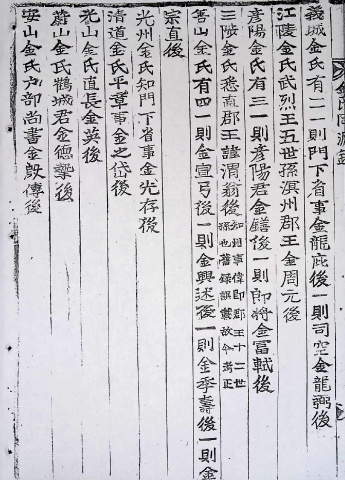 義城金氏有二一則門下省事金龍庇後一則司空金龍弼後
江陵金氏武烈王五世孫溟州郡王金周元後
彦陽金氏有三一則彦陽君金鐥後一則郎將金冨軾後
三陟金氏悉直郡王謹渭翁後知州事偉即郡王十二世孫也舊録誤載故今考正
善山金氏有四一則金宣弓後一則金興述後一則金季壽後一則金
宗直後
光州金氏知門下省事金光存後
清道金氏平章事金之岱後
光山金氏直長金英後
蔚山金氏鶴城君金德摯後
安山金氏戶部尚書金殷傳後